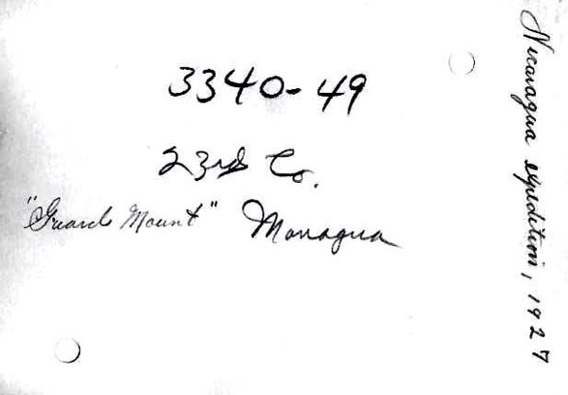 3340-49
23rd Co.
"Guard Mount" Managua
Nicaragua expedition, 1927